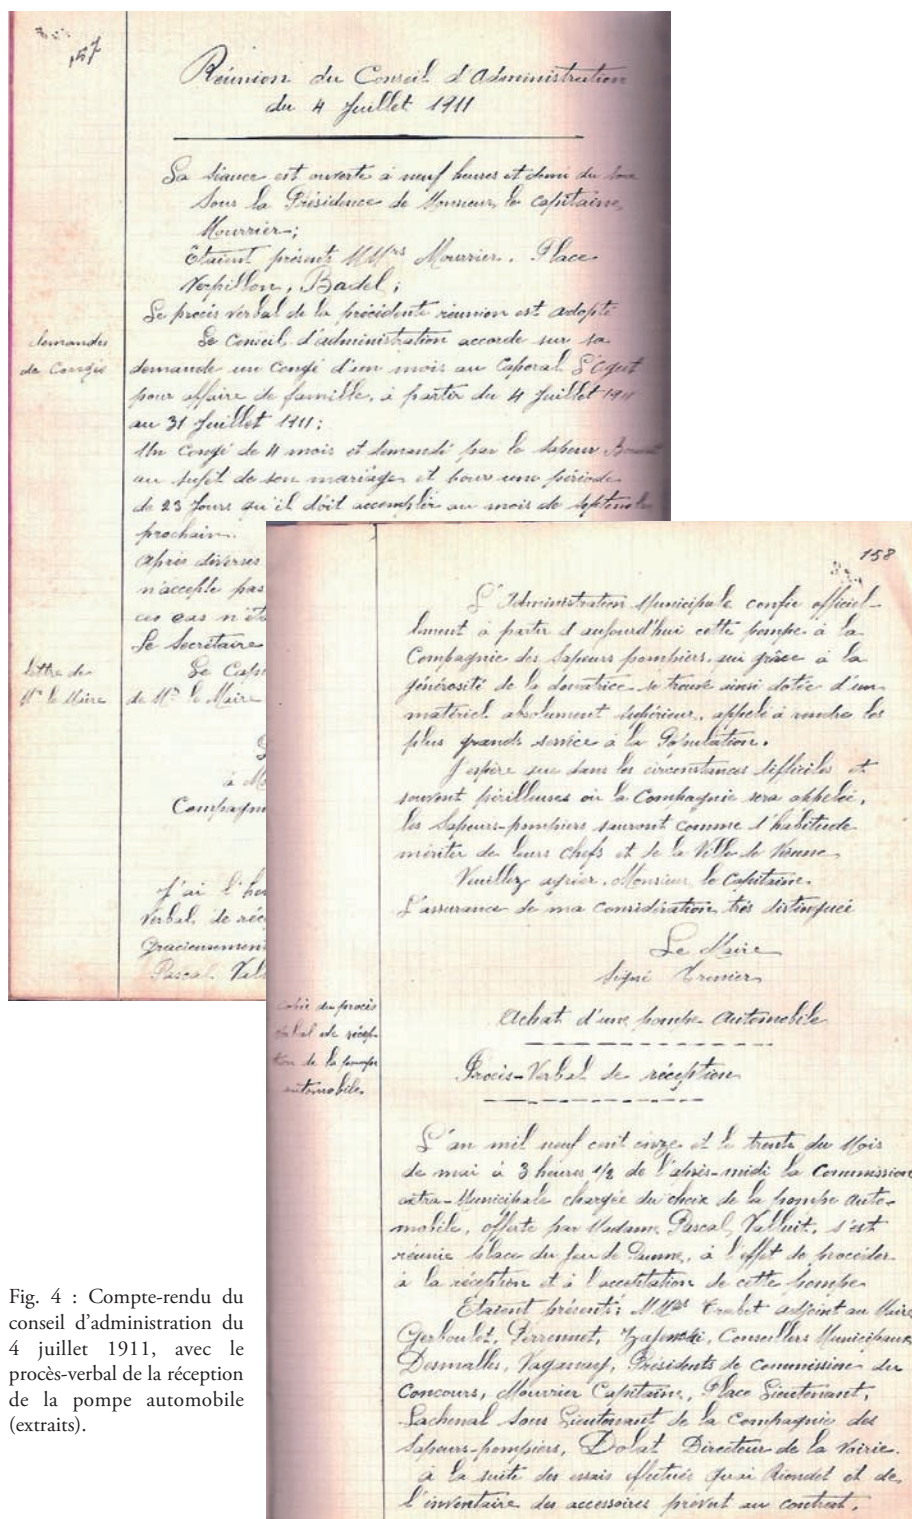 157
Réunion du Conseil d'Administration
du 4 Juillet 1911
La séance est ouverte à neuf heures et demi du soir
sous la Présidence de Monsieur le Capitaine
Mourrier;
Etaient présents MMrs Mourrier. Place
Verpillon, Badel;
Le procès verbal de la précédente réunion est adopté
demandes
de Congés
Le Conseil d'administration accorde sur sa
demande un Congé d'un mois au Caporal
pour affaire de famille, à partir du 4 Juillet 1911
au 31 Juillet 1911;
Un Congé de 4 mois et demandé par le sapeur
au sujet de son mariage et pour une période
de 23 Jours qu'il doit accomplir au mois de septembre
prochain.
Après diverses
n'accepte pas
ces cas n'éta
Le Secrétaire
lettre de
Mr le Maire
Le Capi
de Mr le Maire
à M
Compagni
J'ai l'hon
Verbal de réc
Gracieusement
Pascal Val
158
L'Administration Municipale confie officiel-
lement à partir d'aujourd'hui cette pompe à la
Compagnie des Sapeurs pompiers, qui grâce à la
générosité de la donatrice se trouve ainsi dotée d'un
matériel absolument supérieur, appelé à rendre les
plus grands service à la Population.
J'espère que dans les circonstances difficiles et
souvent périlleuses où la Compagnie sera appelée,
les Sapeurs-pompiers sauront comme d'habitude
mériter de leurs chefs et de la Ville de Vienne
Veuillez agréer, Monsieur le Capitaine.
L'assurance de ma considération très distinguée
Le Maire
Signé Brenier
copie du procès
verbal de récep-
tion de la pompe
automobile.
Achat d'une pompe Automobile
Procès-Verbal de réception
L'an mil neuf cent onze et le trente du Mois
de mai à 3 heures 1/2 de l'après-midi la Commission
extra-Municipale chargée du choix de la pompe auto-
mobile, offerte par Madame Pascal Valluit, s'est
réunie place du Jeu de Paume, à l'effet de procéder
à la réception et à l'acceptation de cette pompe
Etaient présents; MMrs adjoint au Maire
Gerboulet, Perrennet, Conseillers Municipaux
Desmalles, Vaganay, Présidents de Commission du
Concours, Mourrier Capitaine, Place Lieutenant,
Lachenal Sous Lieutenant de la Compagnie des
Sapeurs-pompiers, Dolat Directeur de la Voirie.
à la suite des essais effectués quai Riondet et de
l'inventaire des accessoires prévut au contrat,
Fig. 4 : Compte-rendu du
conseil d'administration du
4 juillet 1911, avec le
procès-verbal de la réception
de la pompe automobile
(extraits).